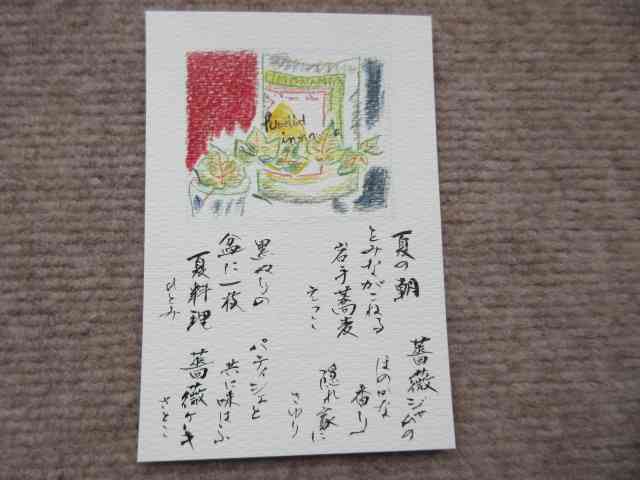 夏の朝
とみながこねる
岩手蕎麦
えつこ
薔薇ジャムの
ほのかな
香り
隠れ家に
さゆり
黒ぬりの
盆に一枚
夏料理
ひとみ
パティシェと
共に味はふ
薔薇ケーキ
さとこ